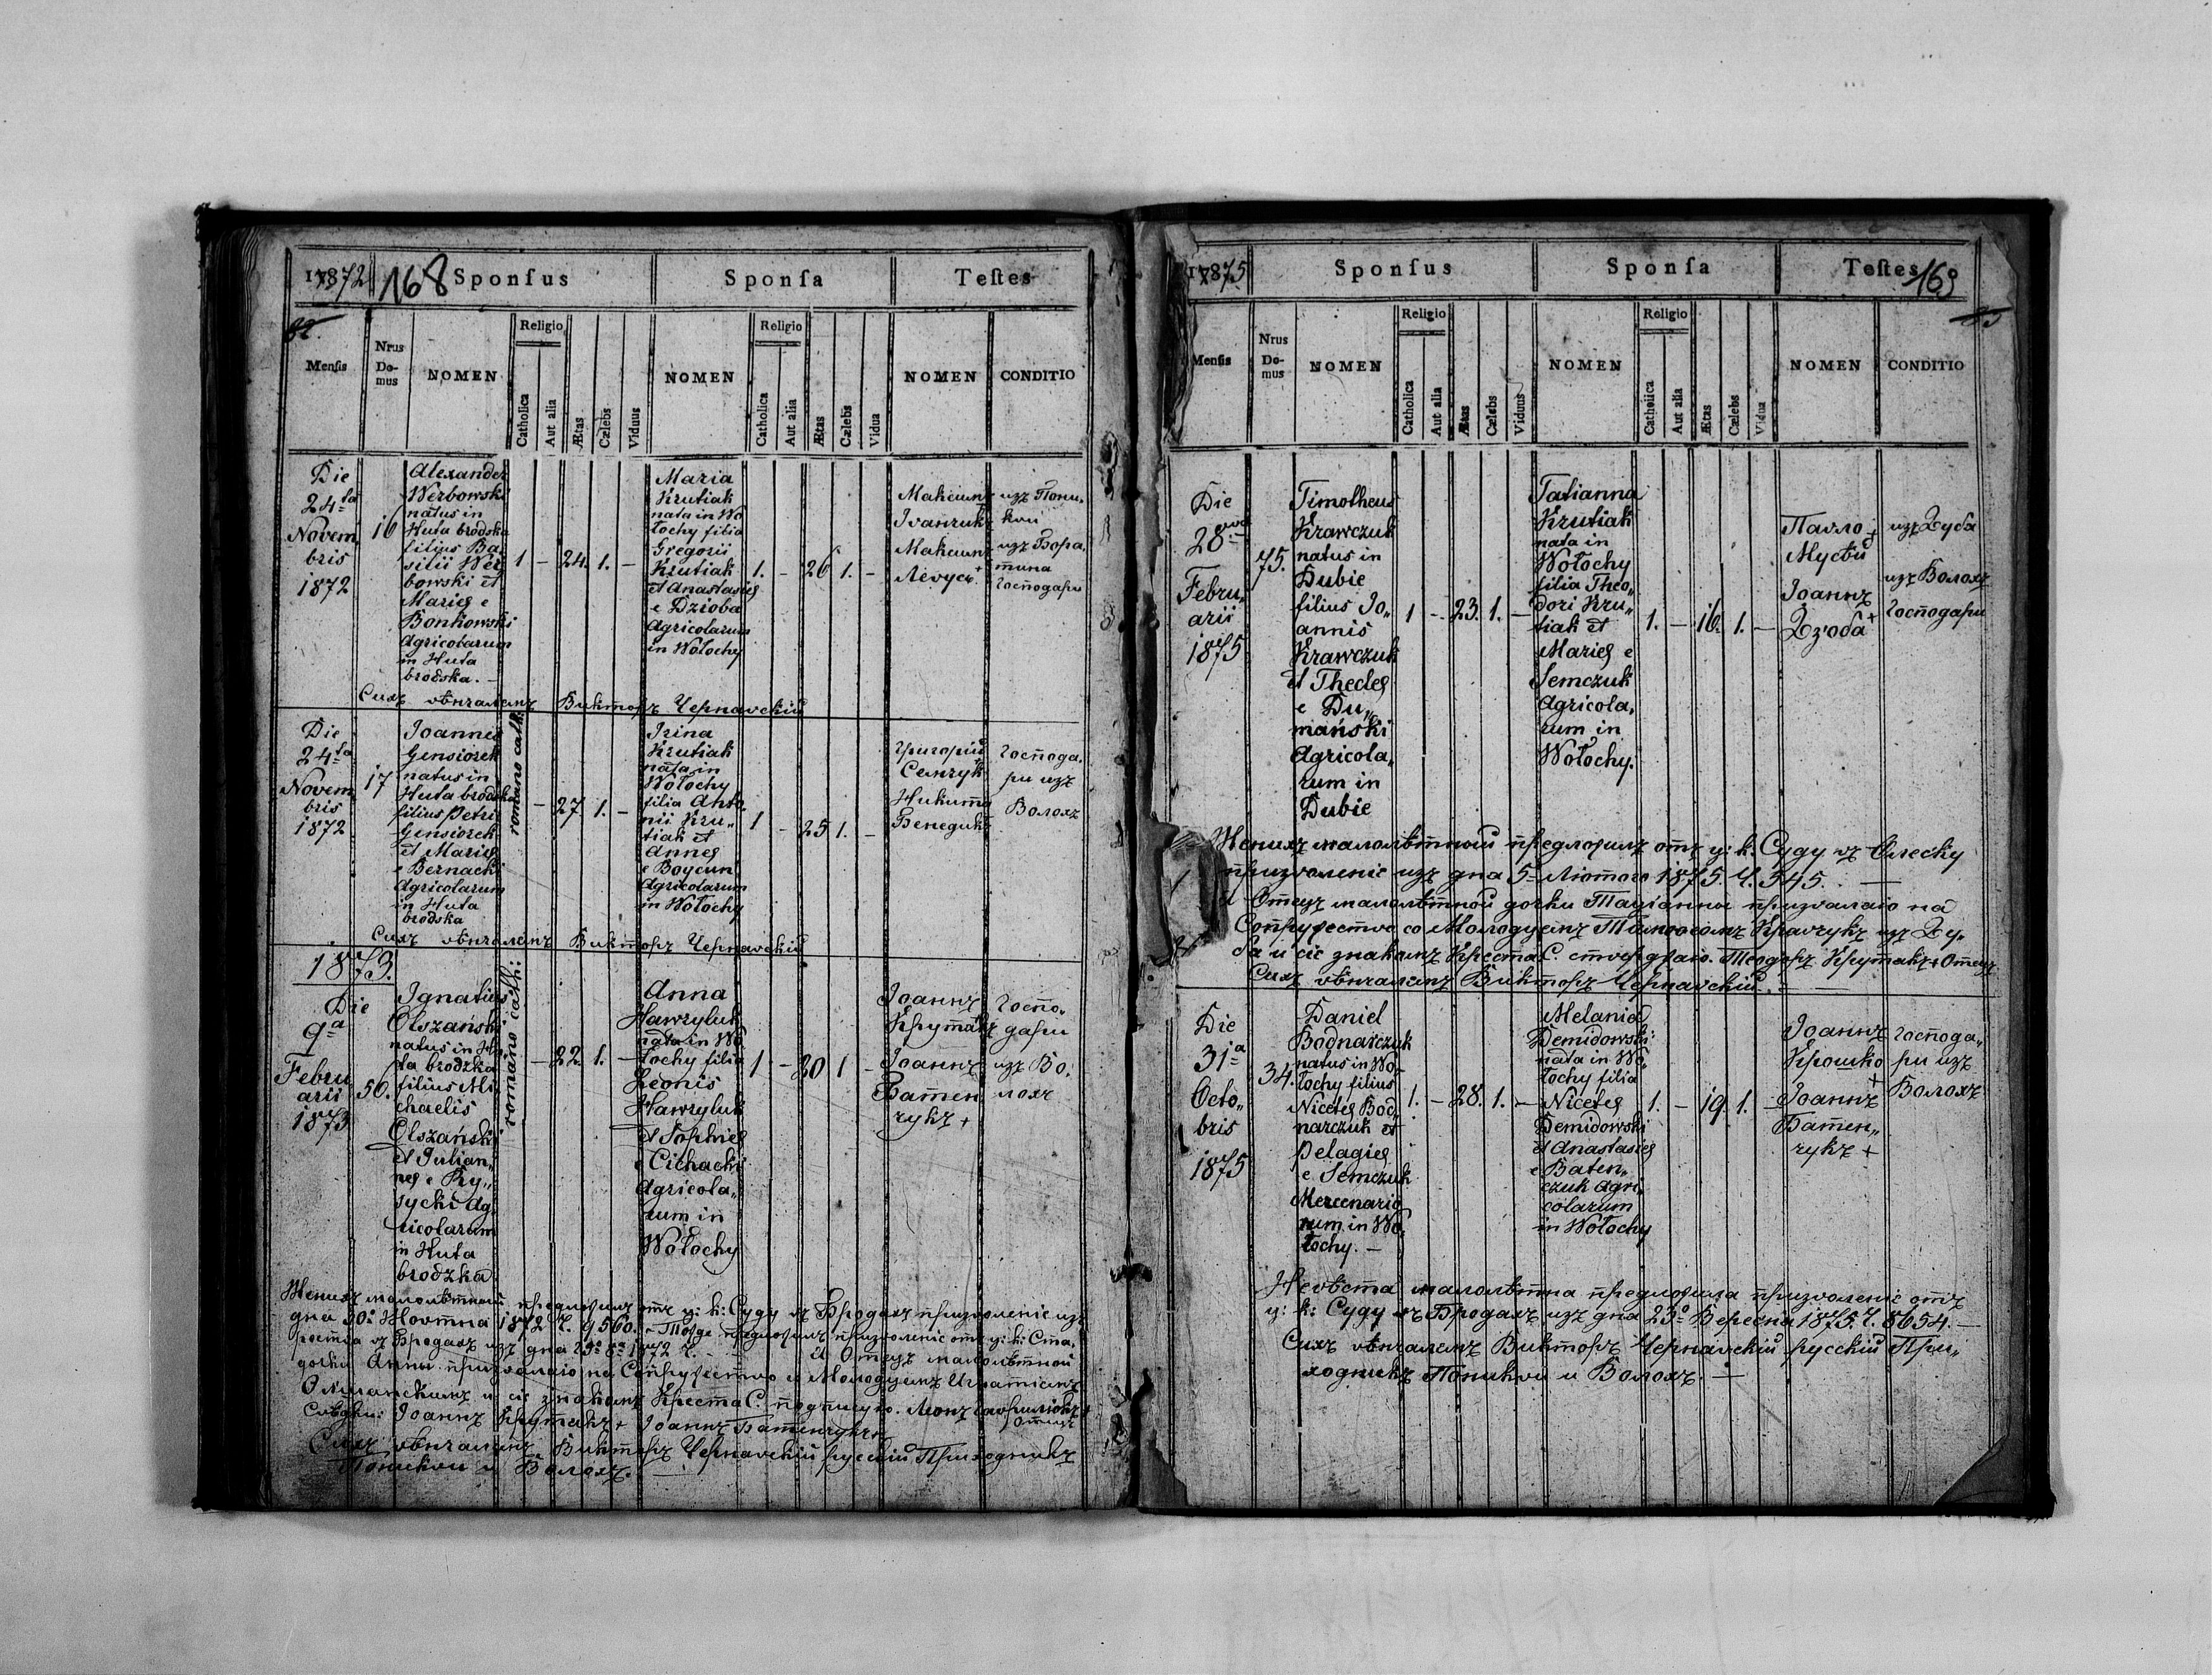 1872 168 Sponſus Sponſa Teſtes
82.
Menſis Nrus Do-mus NOMEN Religio Catholica Aut alia Ætas Cælebs Viduus NOMEN Religio Catholica Aut alia Ætas Cælebs Vidua NOMEN CONDITIO
Die
24ta
Novem
bris
1872
16
Alexander
Werbowski
natus in
Huta brodska
filius Ba
silii Wer
bowski et
Marięs e
Bonkowski
Agricolarum
in Huta
brodska. –
1 – 24. 1. –
Maria
Krutiak
nata in Wo
łochy filia
Gregorii
Krutiak
et Anastasies
e Dzioba
Agricolarum
in Wołochy
1. – 26 1. –
Максимъ
Іванчукъ
Максимъ
Левусь. +
изъ Пони,
кви
изъ Бора,
тина
господари
Сихъ вѣнчалемъ Викторъ Чернавскій
Die
24ta
Novem
bris
1872
17
Joannes
Gensiorek
natus in
Huta brodska
filius Petri
Gensiorek
et Maries
e Bernacki
Agricolarum
in Huta
brodska
romano cath:
– 27 1. –
Irina
Krutiak
nata in
Wołochy
filia Anto
nii Kru„
tiak et
Annes
e Boycun
Agricolarum
in Wołochy
1 – 25 1. –
Григорій
Семчук
Никита
Бенедикт
господа,
ри изъ
Волохъ
Сихъ вѣнчалемъ Викторъ Чернавскій
1873.
Die
9a
Febru
arii
1873
50.
Ignatius
Olszański
natus in Hu
ta brodzka
filius Mi
chaelis
Olszański
et Julian„
nes e Ry„
sycki Ag
ricolarum
in Huta
brodzka
romano cath:
– 22 1. –
Anna
Hawryluk
nata in Wo
łochy filia
Leonis
Hawryluk
et Sophies
e Cichacki
Agricola„
rum in
Wołochy
1 – 20 1 –
Іоаннъ
Крутакъ
Іоаннъ
Батен
чукъ +
госпо,
дари
изъ Во,
лохъ
Женихъ малолѣтный предложилъ отъ ц: к: Суду въ Бродахъ призволеніе изъ
дна 30о Жовтна 1872 Ч. 9560. – Тожде предложилъ призволеніе отъ ц: к: Ста,
роства въ Бродахъ изъ дна 1872 Ч. Я Отецъ малолѣтной
дочки Анны призваляю на Супружество съ Молодцемъ Игнатіемъ
Олшанскимъ и сіе знакомъ Креста С. подписую. Леонъ Гаврилюкъ +
Отецъ
Свѣдки: Іоаннъ Крутакъ + Іоаннъ Батенчукъ +
Сихъ вѣнчалемъ Викторъ Чернавскій русскій Приходникъ
Пониквы и Волохъ. –
1875 Sponſus Sponſa Teſtes 169
Menſis Nrus Do-mus NOMEN Religio Catholica Aut alia Ætas Cælebs Viduus NOMEN Religio Catholica Aut alia Ætas Cælebs Vidua NOMEN CONDITIO
Die
28va
Febru„
arii
1875
75.
Timotheus
Krawczuk
natus in
Dubie
filius Jo„
annis
Krawczuk
et Thecles
e Du„
mański
Agricola,
rum in
Dubie
1 – 23. 1. –
Tatianna
Krutiak
nata in
Wołochy
filia Theo„
dori Kru„
tiak et
Maries e
Semczuk
Agricola,
rum in
Wołochy.
1. – 16. 1. –
Павло +
Мусѣй
Іоаннъ
Дзюба +
изъ Дуба
изъ Волохъ
господари
Женихъ малолѣтный предложилъ отъ ц: к: Суду въ Олеску
призволеніе изъ дна 5о Лютого 1875. Ч. 345. —
Я Отецъ малолѣтной дочки Таціанны призваляю на
Супружество со Молодцемъ Тимофеемъ Кравчукъ изъ Ду,
ба и сіе знакомъ Креста С. стверджаю. Теодоръ Крутакъ + Отецъ
Сихъ вѣнчалемъ Викторъ Чернавскій. –
Die
31a
Octo„
bris
1875
34.
Daniel
Bodnarczuk
natus in Wo„
łochy filius
Nicetes Bod„
narczuk et
Pelagies
e Semczuk
Mercenario
rum in Wo,
łochy. –
1. – 28. 1. –
Melania
Demidowski
nata in Wo„
łochy filia
Nicetes
Demidowski
et Anastasies
e Baten„
czuk Agri„
colarum
in Wołochy
1. – 19. 1. –
Іоаннъ
Крошко
+
Іоаннъ
Батен„
чукъ +
господа„
ри изъ
Волохъ
Невѣста малолѣтна предложила призволеніе отъ
ц: к: Суду въ Бродахъ изъ дна 23о Вересна 1875. Ч. 8654. —
Сихъ вѣнчалемъ Викторъ Чернавскій русскій При„
ходникъ Пониквы и Волохъ. —